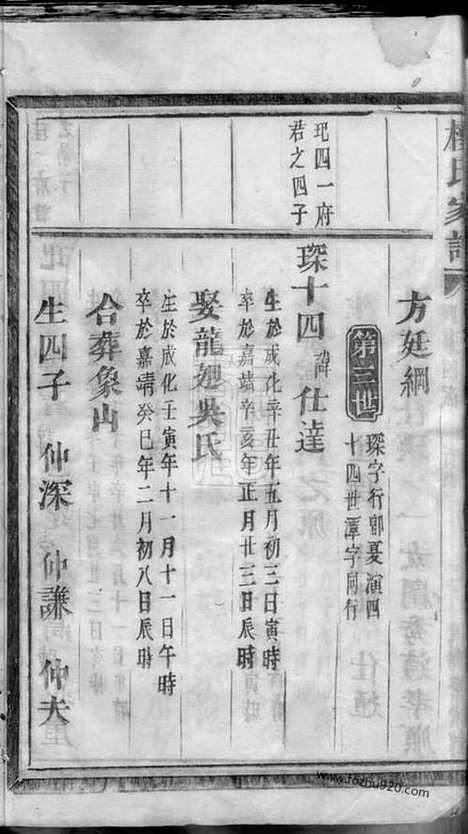 楊氏家譜
方廷綱
第三世
琛字行郎夏演四
十四世潭字同行
玘四一府
君之四子
琛十四 諱 仕達
生於成化辛丑年五月初三日寅時
卒於嘉靖辛亥年正月廿三日辰時
娶龍廻吳氏
生於成化壬寅年十一月十一日午時
卒於嘉靖癸巳年二月初八日辰時
合葬象山
生四子 仲深 仲謙 仲夫
www.fozhu920.com